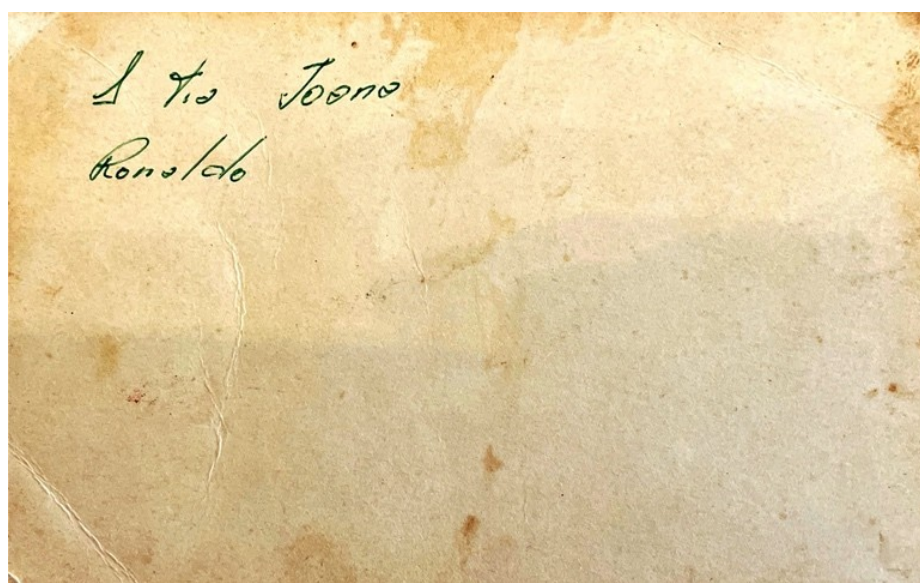 A tia Joana
Ronaldo